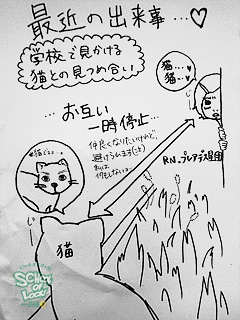 最近の出来事…♡
学校で見かける
猫との見つめ合い
猫…♥
猫…♥
…お互い
一時停止…
仲良くなりたいけれど、
避けられます(泣)
私は
何もしない
じ
じ
RN.プレアデス星団
猫
SCHOOL
OF LOCK!